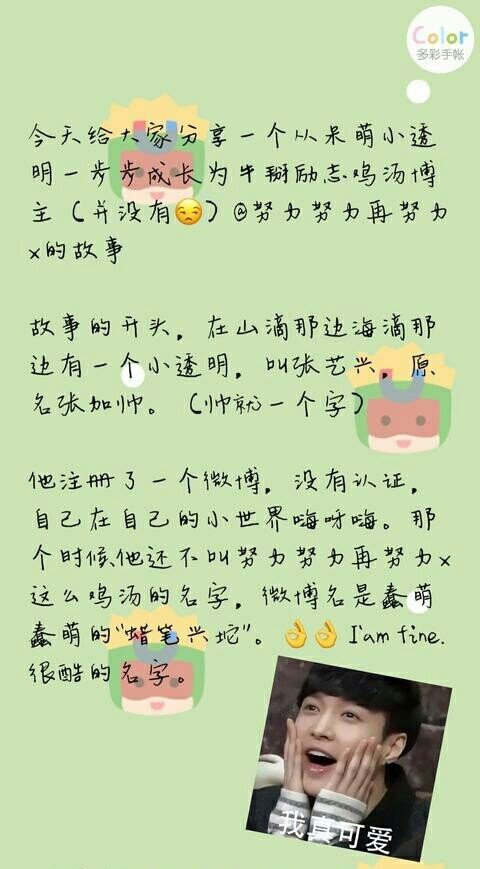 Color
多彩手帐
今天给大家分享一个从呆萌小透
明一步步成长为牛掰励志鸡汤博
主(并没有😒)@努力努力再努力
x的故事
故事的开头，在山滴那边海滴那
边有一个小透明，叫张艺兴，原
名张加帅。(帅就一个字)
他注册了一个微博，没有认证，
自己在自己的小世界嗨呀嗨。那
个时候他还不叫努力努力再努力x
这么鸡汤的名字，微博名是蠢萌
蠢萌的“蜡笔兴坨”。👌👌 I'am fine.
很酷的名字。
我真可爱